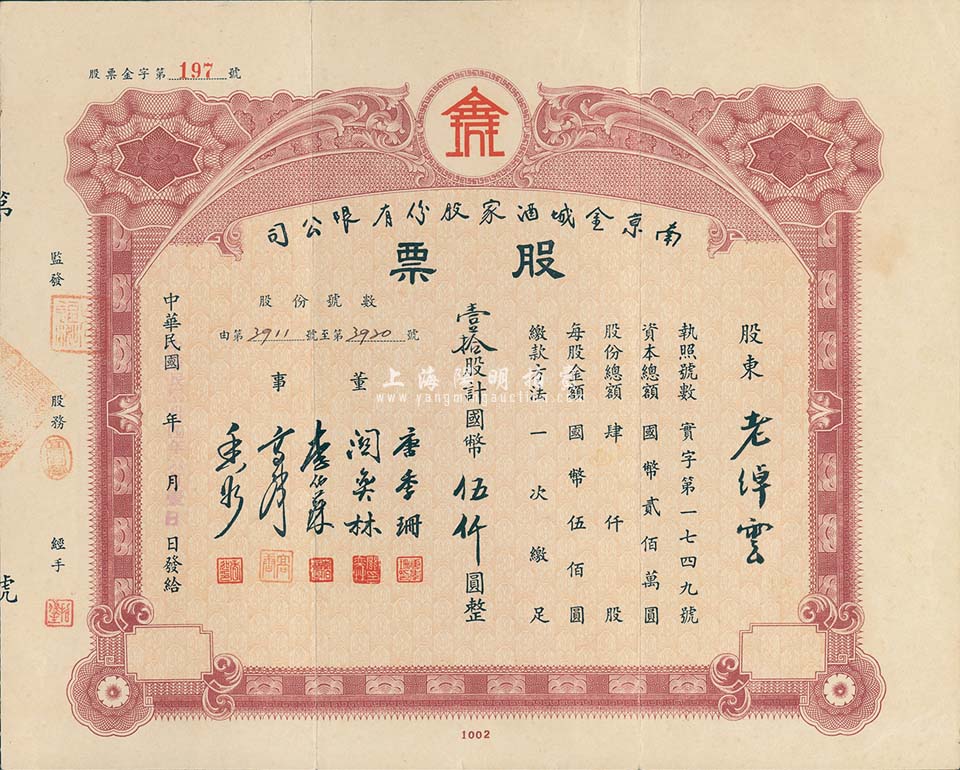 股票金字第197號
南京金城酒家股份有限公司
股票
股東 老倬雲
執照號數 實字第一七四九號
資本總額 國幣貳佰萬圓
股份總額 肆仟股
每股金額 國幣伍佰圓
繳款方法 一次繳足
壹拾股計國幣伍仟圓整
股份號數
由第3911號至第3920號
董事
唐季珊
關奐林
李伯蘇
中華民國 年 月 日發給
監發
股務
經手
第
號
上海陽明拍賣
www.yangmingauction.com
1002